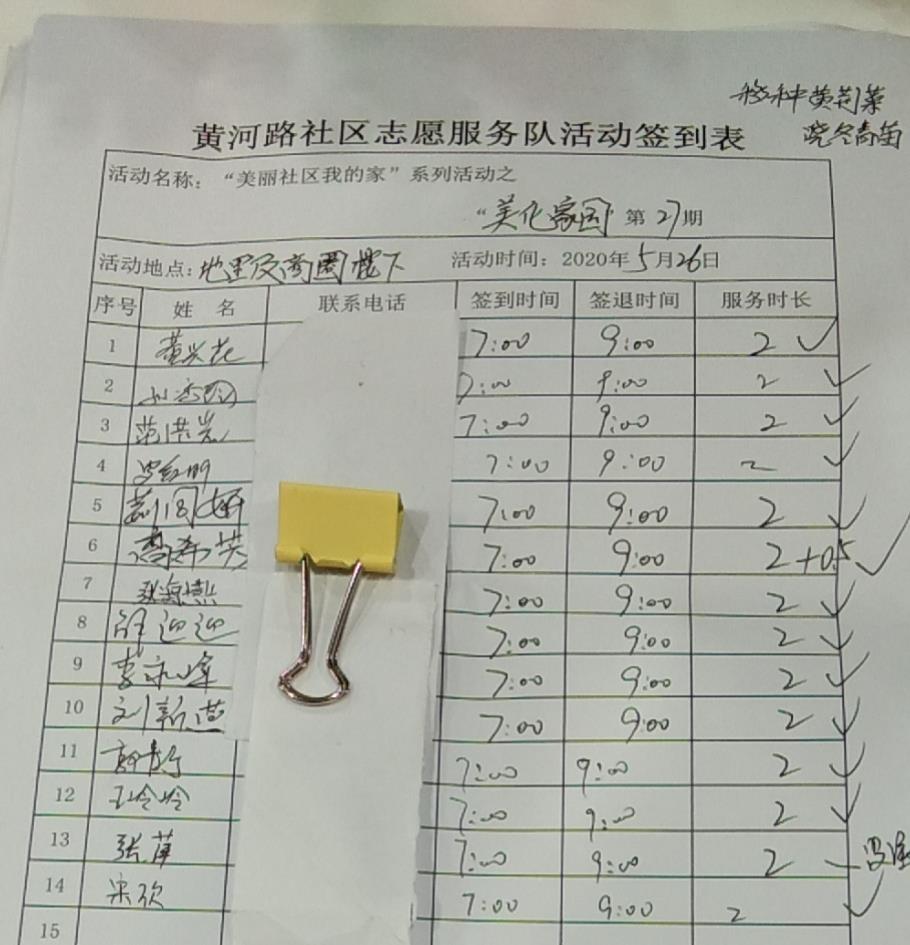 移种黄荆菜
黄河路社区志愿服务队活动签到表
活动名称:“美丽社区我的家”系列活动之
“美化家园”第27期
活动地点: 活动时间:2020年5月26日
序号 姓 名 联系电话 签到时间 签退时间 服务时长
1 7:00 9:00 2 ✓
2 7:00 9:00 2 ✓
3 范洪岩 7:00 9:00 2 ✓
4 7:00 9:00 2 ✓
5 7:00 9:00 2 ✓
6 7:00 9:00 2+0.5 ✓
7 7:00 9:00 2 ✓
8 7:00 9:00 2 ✓
9 李永峰 7:00 9:00 2 ✓
10 刘新燕 7:00 9:00 2 ✓
11 7:00 9:00 2 ✓
12 王冷冷 7:00 9:00 2 ✓
13 张萍 7:00 9:00 2
14 宋欣 7:00 9:00 2 ✓
15